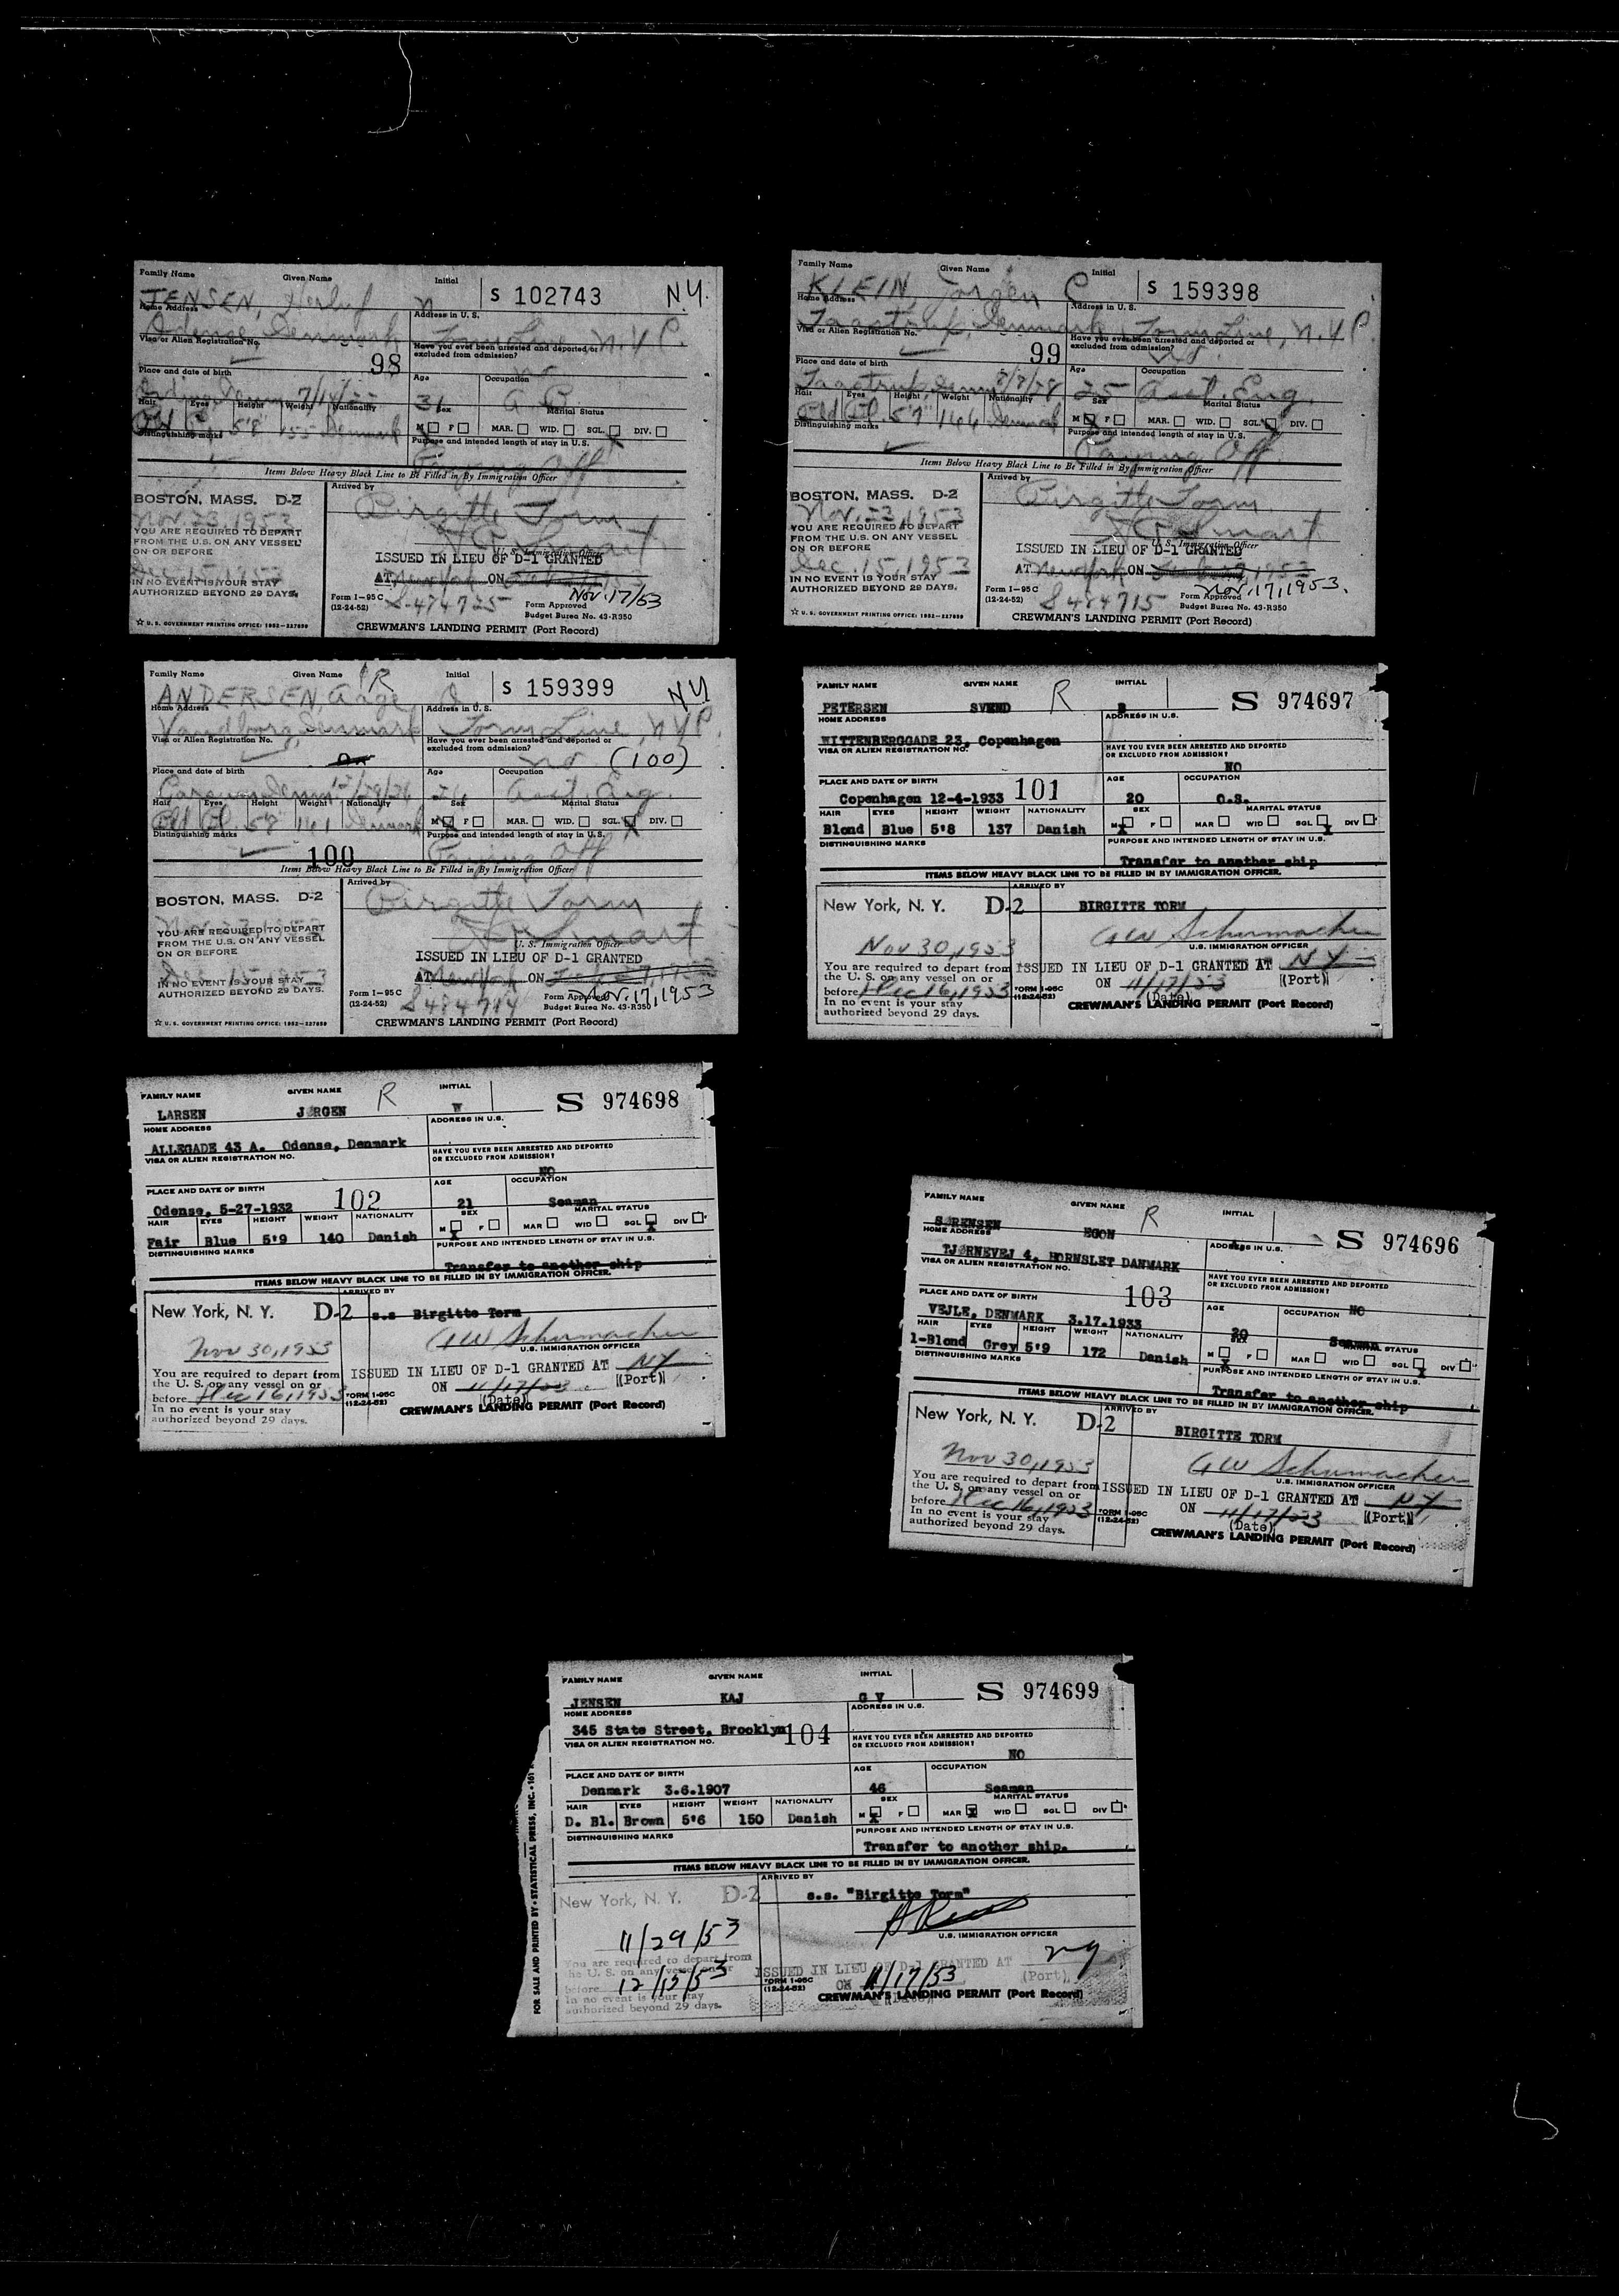 Family Name Given Name Initial
JENSEN, Herluf N S 102743 N.Y.
Home Address Address in U.S.
Odense Denmark Torm Line, N.Y.C.
Visa or Alien Registration No. Have you ever been arrested and deported or excluded from admission?
98 no
Place and date of birth Age Occupation
Denm 7/14/22 31
Hair Eyes Height Weight Nationality Sex Marital Status
5'8 155 Denmark M F MAR. WID. SGL. DIV.
Distinguishing marks Purpose and intended length of stay in U.S.
Paying Off
Items Below Heavy Black Line to Be Filled in By Immigration Officer
BOSTON, MASS. D-2 Arrived by
Nov. 23, 1953 Birgitte Torm
YOU ARE REQUIRED TO DEPART
FROM THE U.S. ON ANY VESSEL
ON OR BEFORE U. S. Immigration Officer
Dec. 15, 1953 ISSUED IN LIEU OF D-1 GRANTED
IN NO EVENT IS YOUR STAY AT New York ON
AUTHORIZED BEYOND 29 DAYS. Nov. 17/53
Form I-95 C
(12-24-52) S-474725 Form Approved
Budget Burea No. 43-R350
☆ U. S. GOVERNMENT PRINTING OFFICE: 1952-227859 CREWMAN'S LANDING PERMIT (Port Record)
Family Name Given Name Initial
KLEIN, Jorgen C S 159398
Home Address Address in U. S.
Taastrup, Denmark Torm Line, N.Y.C.
Visa or Alien Registration No. Have you ever been arrested and deported or excluded from admission?
99 no
Place and date of birth Age Occupation
Taastrup, Denm 25 Asst. Eng.
Hair Eyes Height Weight Nationality Sex Marital Status
5'9" 166 Denmark M F MAR. WID. SGL. DIV.
Distinguishing marks Purpose and intended length of stay in U.S.
Paying Off
Items Below Heavy Black Line to Be Filled in By Immigration Officer
BOSTON, MASS. D-2 Arrived by
Nov. 23, 1953 Birgitte Torm
YOU ARE REQUIRED TO DEPART
FROM THE U.S. ON ANY VESSEL
ON OR BEFORE U. S. Immigration Officer
Dec. 15, 1953 ISSUED IN LIEU OF D-1 GRANTED
IN NO EVENT IS YOUR STAY AT New York ON
AUTHORIZED BEYOND 29 DAYS. Nov. 17, 1953.
Form I-95 C
(12-24-52) S484715 Form Approved
Budget Burea No. 43-R350
☆ U. S. GOVERNMENT PRINTING OFFICE: 1952-227859 CREWMAN'S LANDING PERMIT (Port Record)
Family Name Given Name R Initial
ANDERSEN, Aage S 159399 NY
Home Address Address in U. S.
Denmark Torm Line, N.Y.C.
Visa or Alien Registration No. Have you ever been arrested and deported or excluded from admission?
no (100)
Place and date of birth Age Occupation
Denm 12/29/26 26 Asst. Eng.
Hair Eyes Height Weight Nationality Sex Marital Status
5'8" 161 Denmark M F MAR. WID. SGL. DIV.
Distinguishing marks Purpose and intended length of stay in U.S.
100 Paying Off
Items Below Heavy Black Line to Be Filled in By Immigration Officer
BOSTON, MASS. D-2 Arrived by
Nov. 23, 1953 Birgitte Torm
YOU ARE REQUIRED TO DEPART
FROM THE U.S. ON ANY VESSEL
ON OR BEFORE U. S. Immigration Officer
Dec. 15, 1953 ISSUED IN LIEU OF D-1 GRANTED
IN NO EVENT IS YOUR STAY AT New York ON
AUTHORIZED BEYOND 29 DAYS. Nov. 17, 1953
Form I-95 C
(12-24-52) S484714 Form Approved
Budget Burea No. 43-R350
☆ U. S. GOVERNMENT PRINTING OFFICE: 1952-227859 CREWMAN'S LANDING PERMIT (Port Record)
FAMILY NAME GIVEN NAME R INITIAL
PETERSEN SVEND S 974697
HOME ADDRESS ADDRESS IN U.S.
WITTENBERGGADE 23, Copenhagen
VISA OR ALIEN REGISTRATION NO. HAVE YOU EVER BEEN ARRESTED AND DEPORTED OR EXCLUDED FROM ADMISSION?
NO
PLACE AND DATE OF BIRTH 101 AGE OCCUPATION
Copenhagen 12-4-1933 20 O.S.
HAIR EYES HEIGHT WEIGHT NATIONALITY SEX MARITAL STATUS
Blond Blue 5'8 137 Danish M X F MAR WID SGL X DIV
DISTINGUISHING MARKS PURPOSE AND INTENDED LENGTH OF STAY IN U.S.
Transfer to another ship
ITEMS BELOW HEAVY BLACK LINE TO BE FILLED IN BY IMMIGRATION OFFICER.
New York, N. Y. D-2 ARRIVED BY
BIRGITTE TORM
Nov 30, 1953 GW Schumacher
U.S. IMMIGRATION OFFICER
You are required to depart from ISSUED IN LIEU OF D-1 GRANTED AT NY
the U. S. on any vessel on or (Port)
before Dec 16, 1953 ON 11/17/53
In no event is your stay FORM I-95C (12-24-52) (Date)
authorized beyond 29 days. CREWMAN'S LANDING PERMIT (Port Record)
FAMILY NAME GIVEN NAME R INITIAL
LARSEN JØRGEN W S 974698
HOME ADDRESS ADDRESS IN U.S.
ALLEGADE 43 A. Odense, Denmark
VISA OR ALIEN REGISTRATION NO. HAVE YOU EVER BEEN ARRESTED AND DEPORTED OR EXCLUDED FROM ADMISSION?
NO
PLACE AND DATE OF BIRTH 102 AGE OCCUPATION
Odense, 5-27-1932 21 Seaman
HAIR EYES HEIGHT WEIGHT NATIONALITY SEX MARITAL STATUS
Fair Blue 5'9 140 Danish M X F MAR WID SGL X DIV
DISTINGUISHING MARKS PURPOSE AND INTENDED LENGTH OF STAY IN U.S.
Transfer to another ship
ITEMS BELOW HEAVY BLACK LINE TO BE FILLED IN BY IMMIGRATION OFFICER.
New York, N. Y. D-2 ARRIVED BY
s.s Birgitte Torm
Nov 30, 1953 GW Schumacher
U.S. IMMIGRATION OFFICER
You are required to depart from ISSUED IN LIEU OF D-1 GRANTED AT NY
the U. S. on any vessel on or (Port)
before Dec 16, 1953 ON 11/17/53
In no event is your stay FORM I-95C (12-24-52) (Date)
authorized beyond 29 days. CREWMAN'S LANDING PERMIT (Port Record)
FAMILY NAME GIVEN NAME R INITIAL
SØRENSEN EGON S 974696
HOME ADDRESS ADDRESS IN U.S.
TJØRNEVEJ 4, HORNSLET DANMARK
VISA OR ALIEN REGISTRATION NO. HAVE YOU EVER BEEN ARRESTED AND DEPORTED OR EXCLUDED FROM ADMISSION?
NO
PLACE AND DATE OF BIRTH 103 AGE OCCUPATION
VEJLE, DENMARK 3.17.1933 20 Seaman
HAIR EYES HEIGHT WEIGHT NATIONALITY SEX MARITAL STATUS
l-Blond Grey 5'9 172 Danish M X F MAR WID SGL X DIV
DISTINGUISHING MARKS PURPOSE AND INTENDED LENGTH OF STAY IN U.S.
Transfer to another ship
ITEMS BELOW HEAVY BLACK LINE TO BE FILLED IN BY IMMIGRATION OFFICER.
New York, N. Y. D-2 ARRIVED BY
BIRGITTE TORM
Nov 30, 1953 GW Schumacher
U.S. IMMIGRATION OFFICER
You are required to depart from ISSUED IN LIEU OF D-1 GRANTED AT NY
the U. S. on any vessel on or (Port)
before Dec 16, 1953 ON 11/17/53
In no event is your stay FORM I-95C (12-24-52) (Date)
authorized beyond 29 days. CREWMAN'S LANDING PERMIT (Port Record)
FAMILY NAME GIVEN NAME INITIAL
JENSEN KAJ G V S 974699
HOME ADDRESS ADDRESS IN U.S.
345 State Street, Brooklyn 104
VISA OR ALIEN REGISTRATION NO. HAVE YOU EVER BEEN ARRESTED AND DEPORTED OR EXCLUDED FROM ADMISSION?
NO
PLACE AND DATE OF BIRTH AGE OCCUPATION
Denmark 3.6.1907 46 Seaman
HAIR EYES HEIGHT WEIGHT NATIONALITY SEX MARITAL STATUS
D. Bl. Brown 5'6 150 Danish M X F MAR X WID SGL DIV
DISTINGUISHING MARKS PURPOSE AND INTENDED LENGTH OF STAY IN U.S.
Transfer to another ship.
ITEMS BELOW HEAVY BLACK LINE TO BE FILLED IN BY IMMIGRATION OFFICER.
New York, N. Y. D-2 ARRIVED BY
s.s. "Birgitte Torm"
11/29/53 U.S. IMMIGRATION OFFICER
You are required to depart from ISSUED IN LIEU OF D-1 GRANTED AT ny
the U. S. on any vessel on or (Port)
before 12/15/53 ON 11/17/53
In no event is your stay FORM I-95C (12-24-52) (Date)
authorized beyond 29 days. CREWMAN'S LANDING PERMIT (Port Record)
FOR SALE AND PRINTED BY - STATISTICAL PRESS, INC.